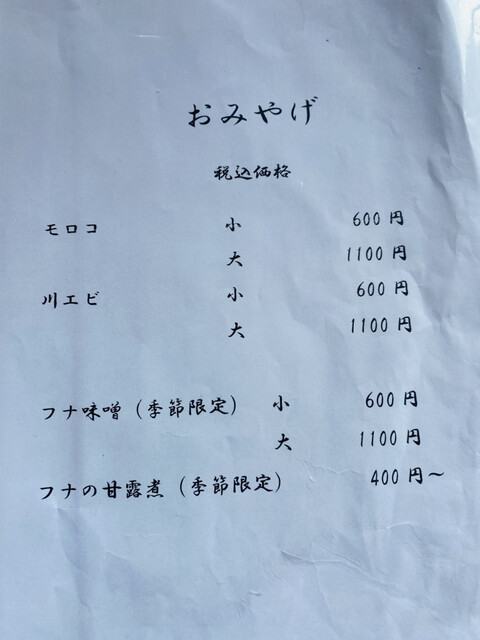 おみやげ
税込価格
モロコ 小 600円
大 1100円
川エビ 小 600円
大 1100円
フナ味噌（季節限定） 小 600円
大 1100円
フナの甘露煮（季節限定） 400円～